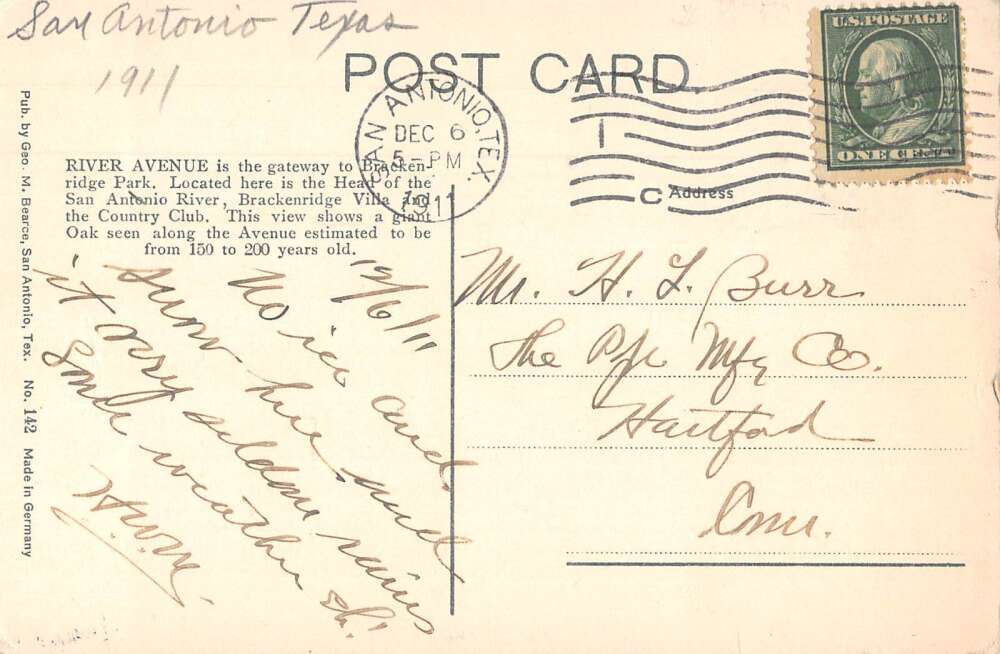 San Antonio Texas
1911
POST CARD
SAN ANTONIO, TEX.
DEC 6
5-PM
1911
U.S. POSTAGE
ONE CENT
RIVER AVENUE is the gateway to Bracken-
ridge Park. Located here is the Head of the
San Antonio River, Brackenridge Villa and
the Country Club. This view shows a giant
Oak seen along the Avenue estimated to be
from 150 to 200 years old.
Address
Pub. by Geo. M. Bearce, San Antonio, Tex. No. 142 Made in Germany
12/6/11
No ice and
snow here and
it very seldom rains
Some weather eh!
Mr. H. L. Burr
The Mfg Co.
Hartford
Conn.